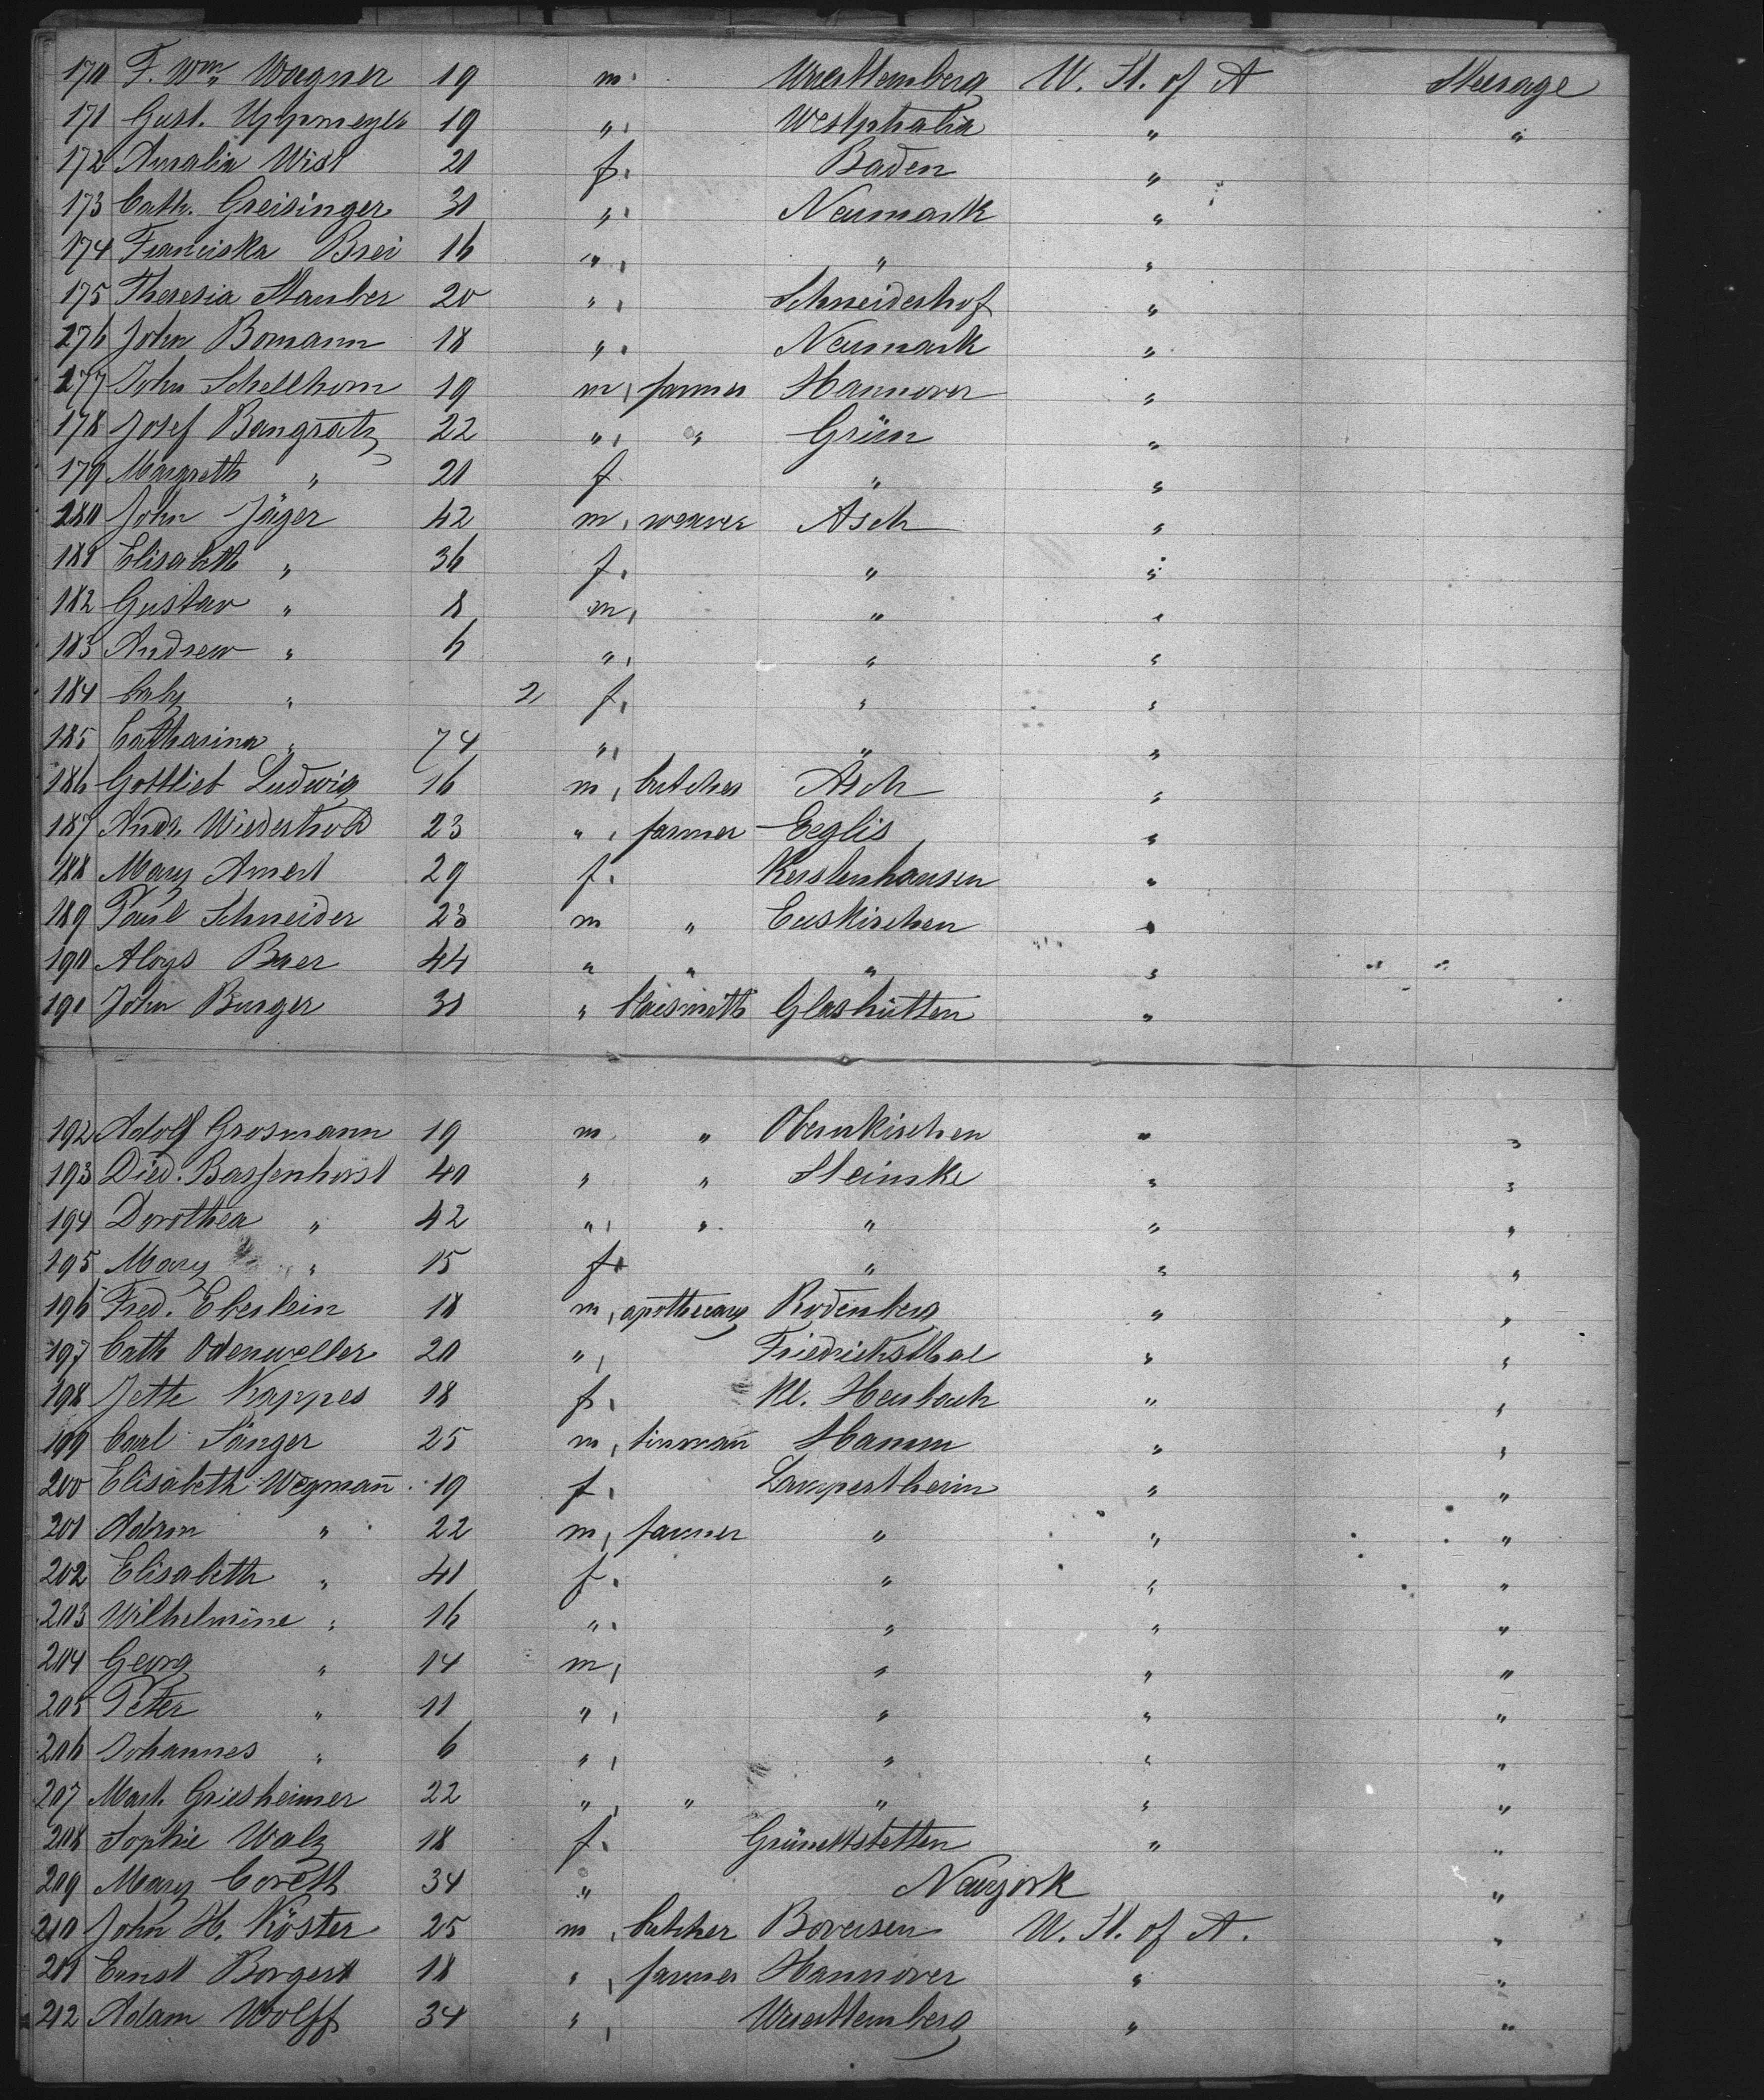 170 F. Wm Wagner 19 m. Wuerttemberg U. St. of A Steerage
171 Gust. Uppmeyer 19 " Westphalia " "
172 Amalia Wist 21 f. Baden "
173 Cath. Greisinger 31 " Neumark "
174 Franciska Brei 16 " " "
175 Theresia Stauber 20 " Schneidershof "
176 John Bomann 18 " Neumark "
177 John Schellhorn 19 m farmer Hannover "
178 Josef Bangratz 22 " " Grün "
179 Margreth " 21 f " "
180 John Jäger 42 m weaver Asch "
181 Elisabeth " 36 f. " "
182 Gustav " 8 m " "
183 Andrew " 6 " " "
184 baby " 2 f. " "
185 Catharina " 74 " " "
186 Gottlieb Ludwig 16 m butcher Asch "
187 Andr. Wiederhold 23 " farmer "
188 Mary Amert 29 f. Kerstenhausen "
189 Paul Schneider 23 m " Euskirchen "
190 Aloys Baer 44 " " " "
191 John Burger 31 " Glashütten "
192 Adolf Grosmann 19 m " Obernkirchen " "
193 Died. 40 " " Steimke " "
194 Dorothea " 42 " " " " "
195 Mary " 15 f. " " "
196 Fred. Eberlein 18 m, apothecary Rodenberg " "
197 Cath Odenweller 20 " Friedrichsthal " "
198 Jette Kappes 18 f. Kl. Heubach " "
199 Carl Sänger 25 m, tinman̄ Hamm " "
200 Elisabeth Wegman̄ 19 f. Lampertheim " "
201 Adam " 22 m, farmer " " "
202 Elisabeth " 41 f. " " "
203 Wilhelmine " 16 " " " "
204 Georg " 14 m, " " "
205 Peter " 11 " " " "
206 Johannes " 6 " " " "
207 Mart. Griesheimer 22 " " " " "
208 Sophie Walz 18 f. " "
209 Mary Coreth 34 " Newyork "
210 John H. Köster 25 m, butcher U. St. of A. "
211 Ernst Borgert 18 " farmer Hannover " "
212 Adam Wolff 34 " Wuerttemberg " "